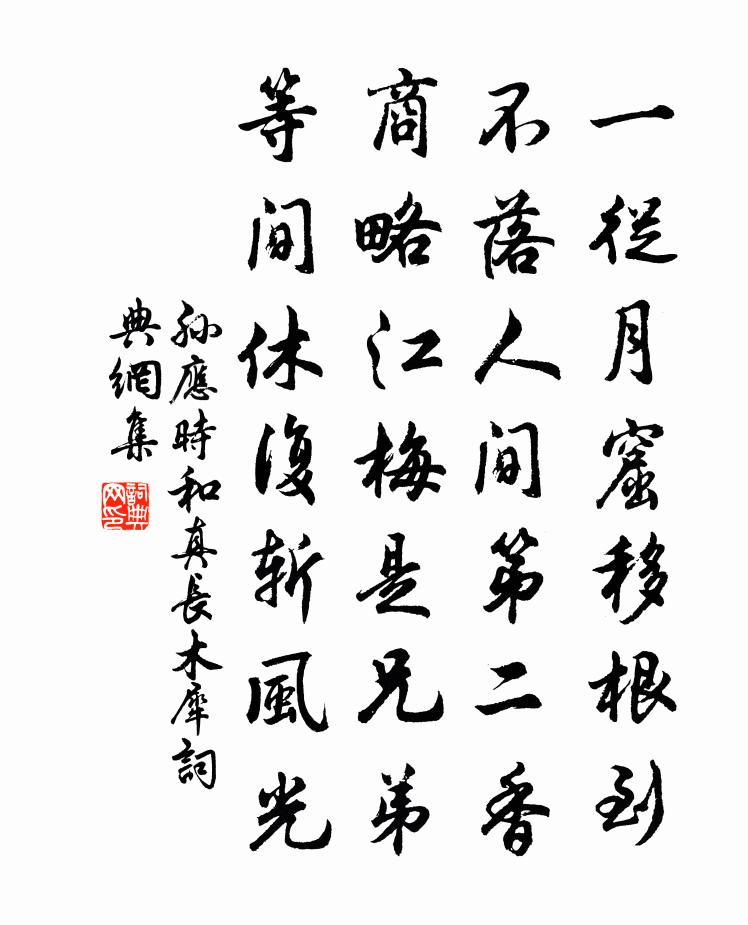 一從月窟移根到
不落人間第二香
商略江梅是兄弟
等間休復斬風光
孫應時和真長木犀詞
典網集
詞典網印